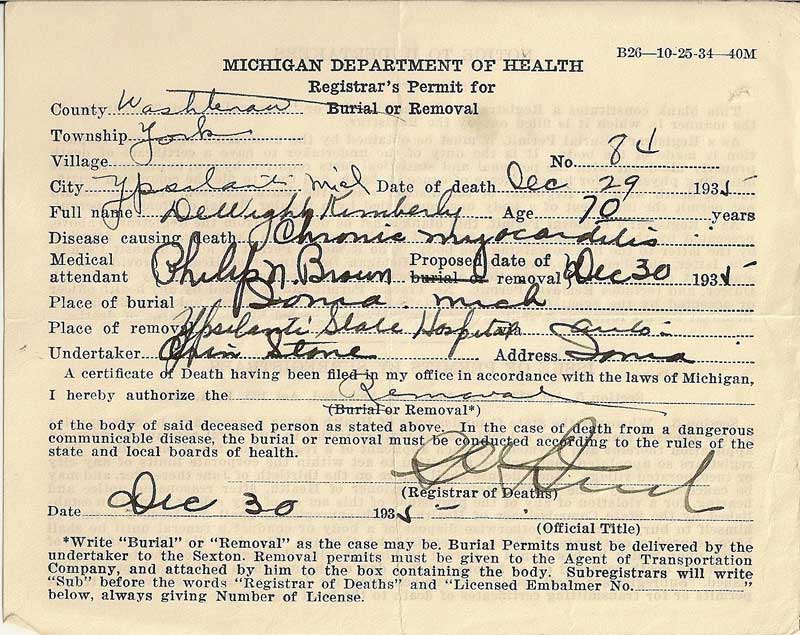 B26—10-25-34—40M
MICHIGAN DEPARTMENT OF HEALTH
Registrar's Permit for
Burial or Removal
County Washtenaw
Township York
Village
No. 84
City Ypsilanti Mich Date of death Dec 29 1935
Full name DeWight Kimberly Age 70 years
Disease causing death Chronic myocarditis
Medical attendant Philip N. Brown Proposed date of burial or removal Dec 30 1935
Place of burial Ionia Mich
Place of removal Ypsilanti State Hospital via auto
Undertaker Stone Address Ionia
A certificate of Death having been filed in my office in accordance with the laws of Michigan,
I hereby authorize the Removal
(Burial or Removal*)
of the body of said deceased person as stated above. In the case of death from a dangerous
communicable disease, the burial or removal must be conducted according to the rules of the
state and local boards of health.
(Registrar of Deaths)
Date Dec 30 1935
(Official Title)
*Write "Burial" or "Removal" as the case may be. Burial Permits must be delivered by the
undertaker to the Sexton. Removal permits must be given to the Agent of Transportation
Company, and attached by him to the box containing the body. Subregistrars will write
"Sub" before the words "Registrar of Deaths" and "Licensed Embalmer No. "
below, always giving Number of License.